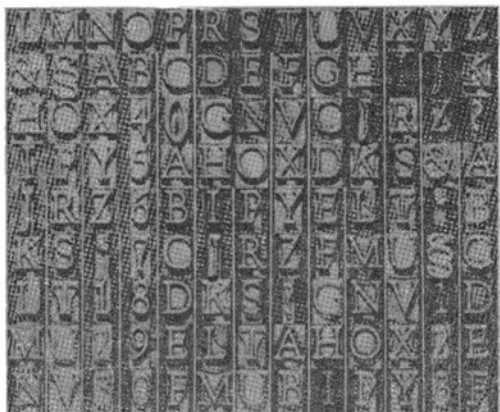 L M N O P R S T U V X Y Z
N S A B C D E F G H I J K
H O X 4 0 G N V C J R Z ?
Y 5 A H O X D K S & A
J R Z 6 B I P Y E L T B
K S 7 C J R Z F M U S C
L T 8 D K S G N V D
M U 9 E L T A H O X E
N V 0 F M U B I P Y F